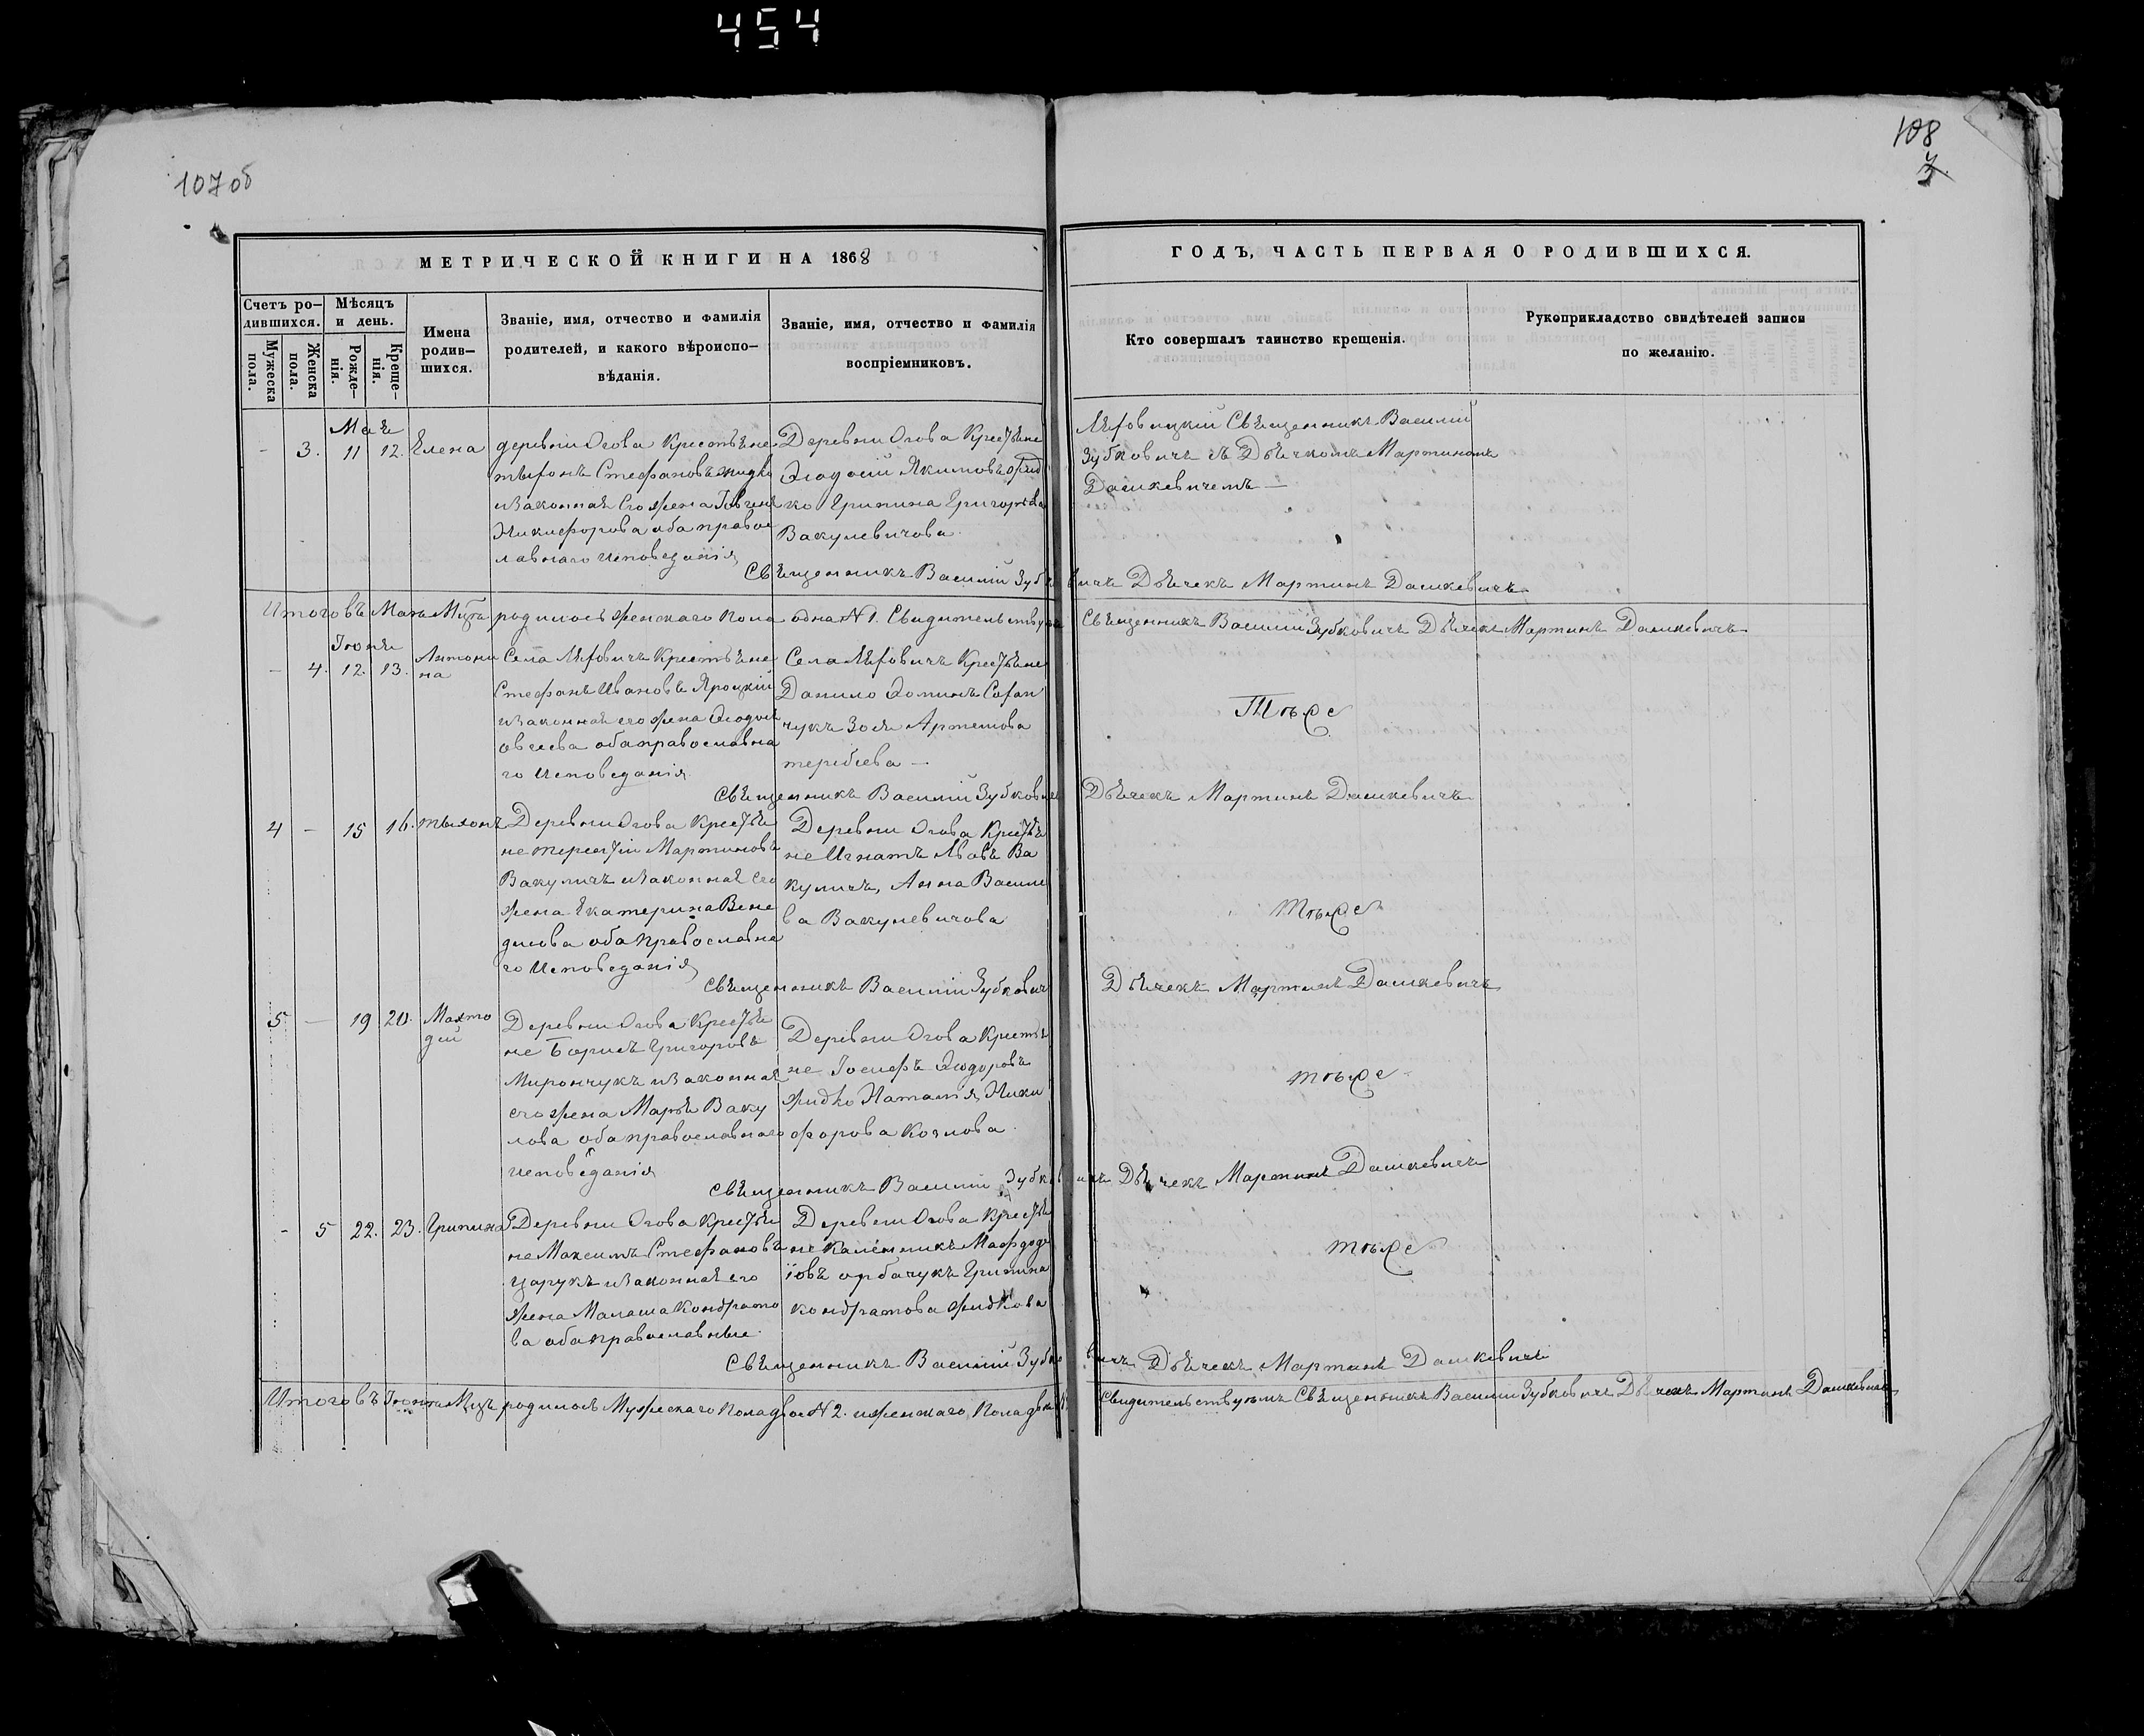 454
107 об
108
3
МЕТРИЧЕСКОЙ КНИГИ НА 1868
ГОДЪ, ЧАСТЬ ПЕРВАЯ О РОДИВШИХСЯ.
Счетъ ро-
дившихся.
Мужеска
пола.
Женска
пола.
Мѣсяцъ
и день.
Рожде-
нія.
Креще-
нія.
Имена
родив-
шихся.
Званіе, имя, отчество и фамилія
родителей, и какого вѣроиспо-
вѣданія.
Званіе, имя, отчество и фамилія
воспріемниковъ.
Кто совершалъ таинство крещенія.
Рукоприкладство свидѣтелей записи
по желанію.
Мая
- 3. 11 12. Елена
деревни Огова Крестьяне
Стефановъ жидко
изаконная Его жена
Никифорова оба право
славнаго исповеданія
Деревни Огова Крестьяне
Якимовъ
ко Грипина Григорьева
Вакулевичова
Священникъ Василій
Зубковичъ съ Дьячкомъ Мартиномъ
Дашкевичемъ —
Священникъ Василій Зубковичъ Дьячекъ Мартинъ Дашкевичъ
Итого въ Маи родилось женскаго Пола одна N 1. Свидительствуемъ Священникъ Василій Зубковичъ Дьячекъ Мартинъ Дашкевичъ
Іюня
- 4. 12. 13. Антони
на
Села Крестьяне
Стефанъ Ивановъ Яроцкій
изаконная его жена
овсеева оба православна
го Исповеданія
Села Крестьяне
Данило
чукъ Зося Артемова
теребеева —
Тоже
Священникъ Василій Зубковичъ Дьячекъ Мартинъ Дашкевичъ
4 — 15 16. тихонъ
Деревни Огова Крестья
не терентій Мартиновъ
Вакуличъ изаконная Его
жена Екатерина Вене
диова оба Православна
го Исповеданія
Деревни Огова Крестья
не Игнатъ Львовъ Ва
куличъ, Анна Василе
ва Вакулевичова
Тоже
Священникъ Василій Зубковичъ Дьячекъ Мартинъ Дашкевичъ
5 — 19 20. Махто
дій
Деревни Огова Крестья
не Борисъ Григоровъ
Мирончукъ изаконная
его жена Марья Ваку
лова оба православнаго
исповеданія
Деревни Огова Крестья
не Іосифъ Ѳюдоровъ
жидко Наталія Ники
форова Козлова.
тоже
Священникъ Василій Зубковичъ Дьячекъ Мартинъ Дашкевичъ
- 5 22. 23. Грипина
Деревни Огова Крестья
не Максимъ Стефановъ
Царукъ изаконная его
жена Малаша Кондрато
ва оба православные.
Деревни Огова Крестья
не Каленникъ
іовъ орбачукъ Грипина
кондратова жидкова
тоже
Священникъ Василій Зубковичъ Дьячекъ Мартинъ Дашкевичъ
Итого въ Іюня родилось Мужескаго Пола двое N 2. иженскаго Пола двѣ Свидительствуемъ Священникъ Василій Зубковичъ Дьячекъ Мартинъ Дашкевичъ